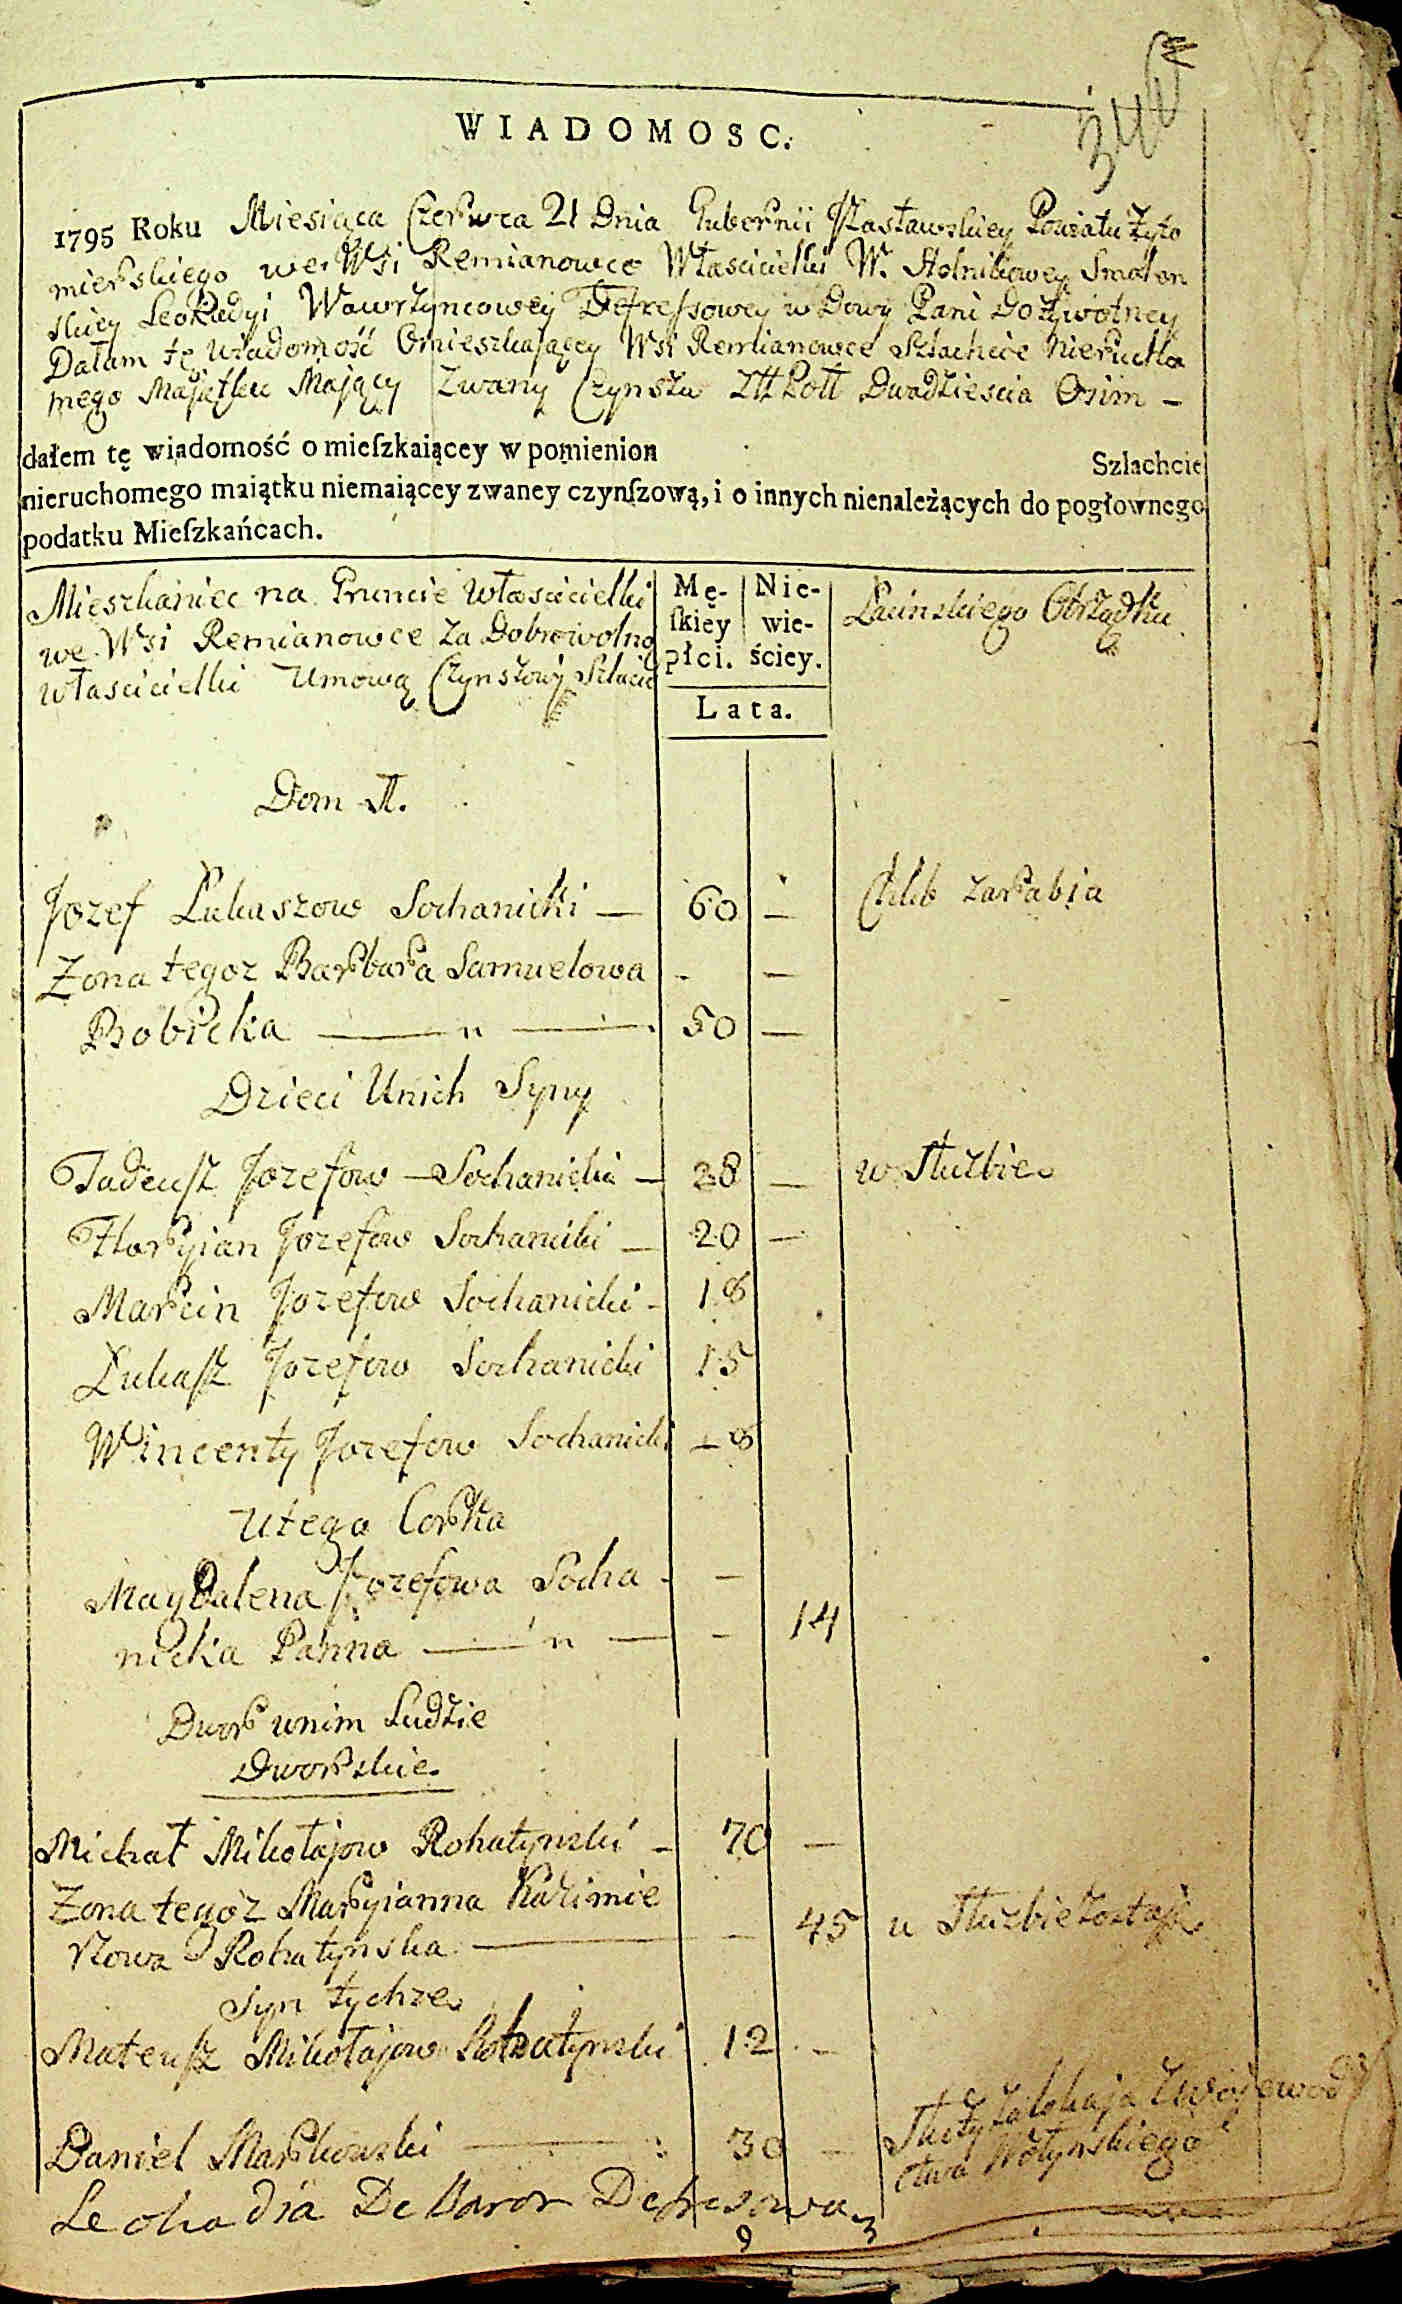 WIADOMOSC.
1795 Roku Miesiąca Czerwca 21 Dnia Gubernii Zasławskiey Powiatu Żyto
mierskiego we Wsi Remianowce Własciciellki W. Stolnikowey Smolen
skiey Leokadyi Wawrzyncowey Defressowey w Dowy Pani Dożywotney
Dałam tę wiadomość Omieszkającey Wsi Remianowce Szlachcie Nierucho
mego Majątku Mający Zwany Czynszu Dwadziescia Osim -
dałem tę wiadomość o mieſzkaiącey w pomienion Szlachcie
nieruchomego maiątku niemaiącey zwaney czynſzową, i o innych nienależących do pogłownego
podatku Mieſzkańcach.
Mieszkaniec na Gruncie własciciellki
we Wsi Remianowce za Dobrowolną
własciciellki Umową Czynszowy Szlachc
Mę- Nie-
ſkiey wie-
płci. ściey.
Lata.
Łacinskiego Obrządku
Dom
Jozef Łukaszow Sochanicki — 60 — Chlib zarabia
Zona tegoz Barbara Samuelowa - —
Bobicka — " — 50 —
Dzieci Unich Syny
Tadeusz Jozefow — Sochanicki — 28 — w Służbie
Floryian Jozefow Sochanicki — 20 —
Marcin Jozefow Sochanicki - 18
Łukasz Jozefow Sochanicki 15
Wincenty Jozefow Sochanicki — 8
Utego Corka
Magdalena Jozefowa Socha - —
nicka Panna — " — - 14
Dwor unim Ludzie
Dworskie
Michał Mikołajow Rohatynski - 70 —
Zona tegoż Maryianna Kazimie
rzowa Rohatynska — - 45 u Służbie zostaje
Syn tychze
Mateusz Mikołajow Rohatynski 12 -
Daniel Markowski — : 30 — Służy za lokaja z Wojewodz
ctwa Wołynskiego
Leokadia De Defresowa
9 3